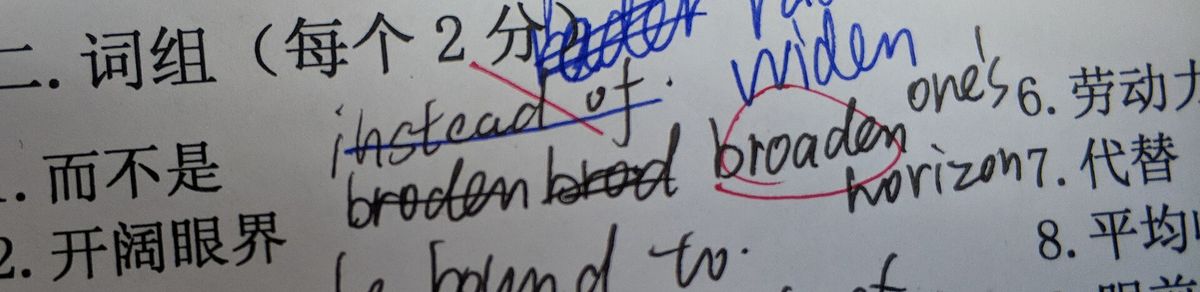 二. 词组（每个2分）
widen
1. 而不是 instead of. one's 6. 劳动力
broden brod broaden horizon 7. 代替
2. 开阔眼界 be bound to. 8. 平均
of